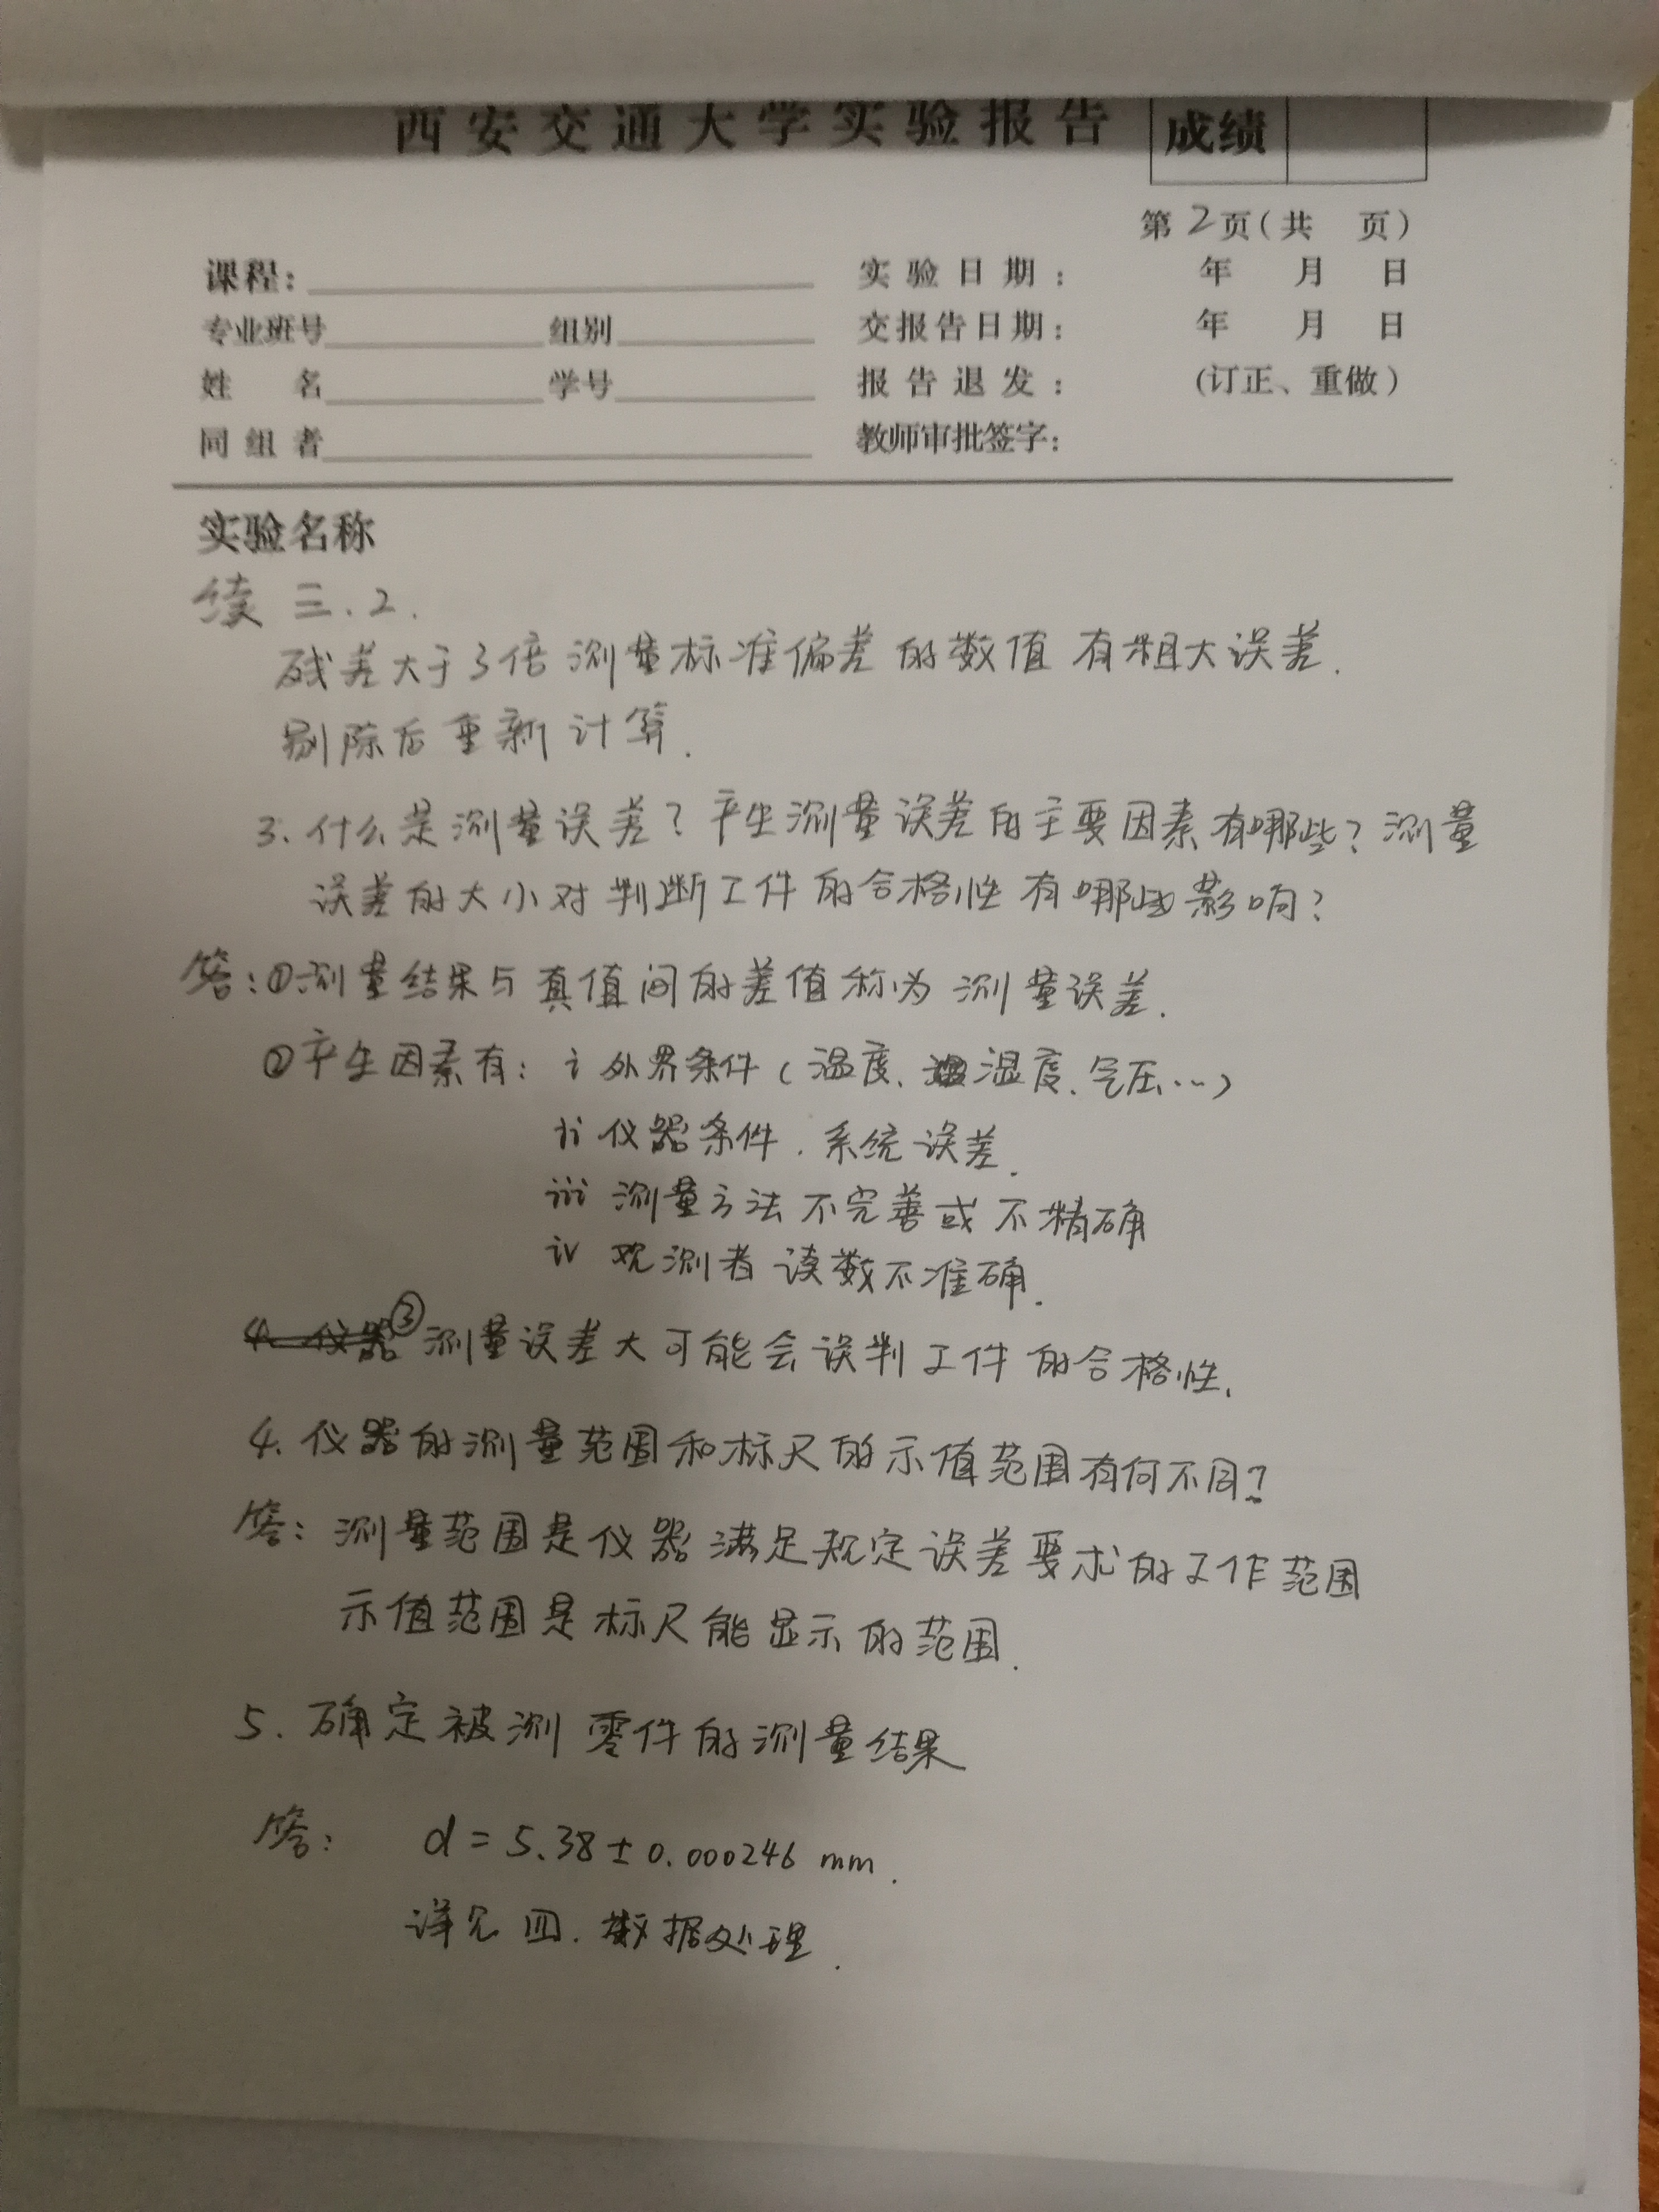 西安交通大学实验报告 成绩
第2页(共 页)
课程: 实验日期: 年 月 日
专业班号 组别 交报告日期: 年 月 日
姓 名 学号 报告退发: (订正、重做)
同组者 教师审批签字:
实验名称
续 三.2.
残差大于3倍测量标准偏差的数值有粗大误差.
剔除后重新计算.
3. 什么是测量误差?产生测量误差的主要因素有哪些?测量
误差的大小对判断工件的合格性有哪些影响?
答:①测量结果与真值间的差值称为测量误差.
②产生因素有: i 外界条件(温度、湿度、气压…)
ii 仪器条件.系统误差.
iii 测量方法不完善或不精确
iv 观测者读数不准确.
4. 仪器 ③ 测量误差大可能会误判工件的合格性.
4. 仪器的测量范围和标尺的示值范围有何不同?
答: 测量范围是仪器满足规定误差要求的工作范围
示值范围是标尺能显示的范围.
5. 确定被测零件的测量结果
答: d = 5.38 ± 0.000246 mm.
详见四.数据处理.